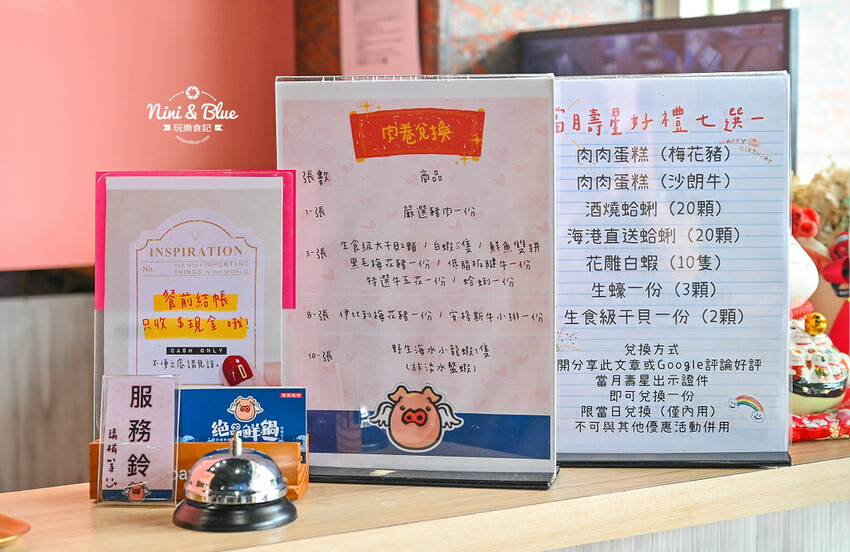 Nini & Blue
玩樂食記
INSPIRATION
No.
THE MOST IMPORTANT
THINGS IN THE WORLD
餐前結帳
只收 $現金 哦!
CASH ONLY
不便之處請見諒。
服務鈴
請稍等
絕鮮鍋
肉卷兌換
張數 商品
1-張 嚴選豬肉一份
3-張 生食級大干貝2顆 / 白蝦5隻 / 鮮魚雙拼
黑毛梅花豬一份 / 低脂板腱牛一份
特選牛五花一份 / 蛤蜊一份
8-張 伊比利梅花豬一份 / 安格斯牛小排一份
10-張 野生海水小龍蝦1隻
(非淡水螯蝦)
當月壽星好禮七選一
HAPPY BIRTHDAY
肉肉蛋糕（梅花豬）
肉肉蛋糕（沙朗牛）
酒燒蛤蜊（20顆）
海港直送蛤蜊（20顆）
花雕白蝦（10隻）
生蠔一份（3顆）
生食級干貝一份（2顆）
兌換方式
開分享此文章或Google評論好評
當月壽星出示證件
即可兌換一份
限當日兌換（僅內用）
不可與其他優惠活動併用